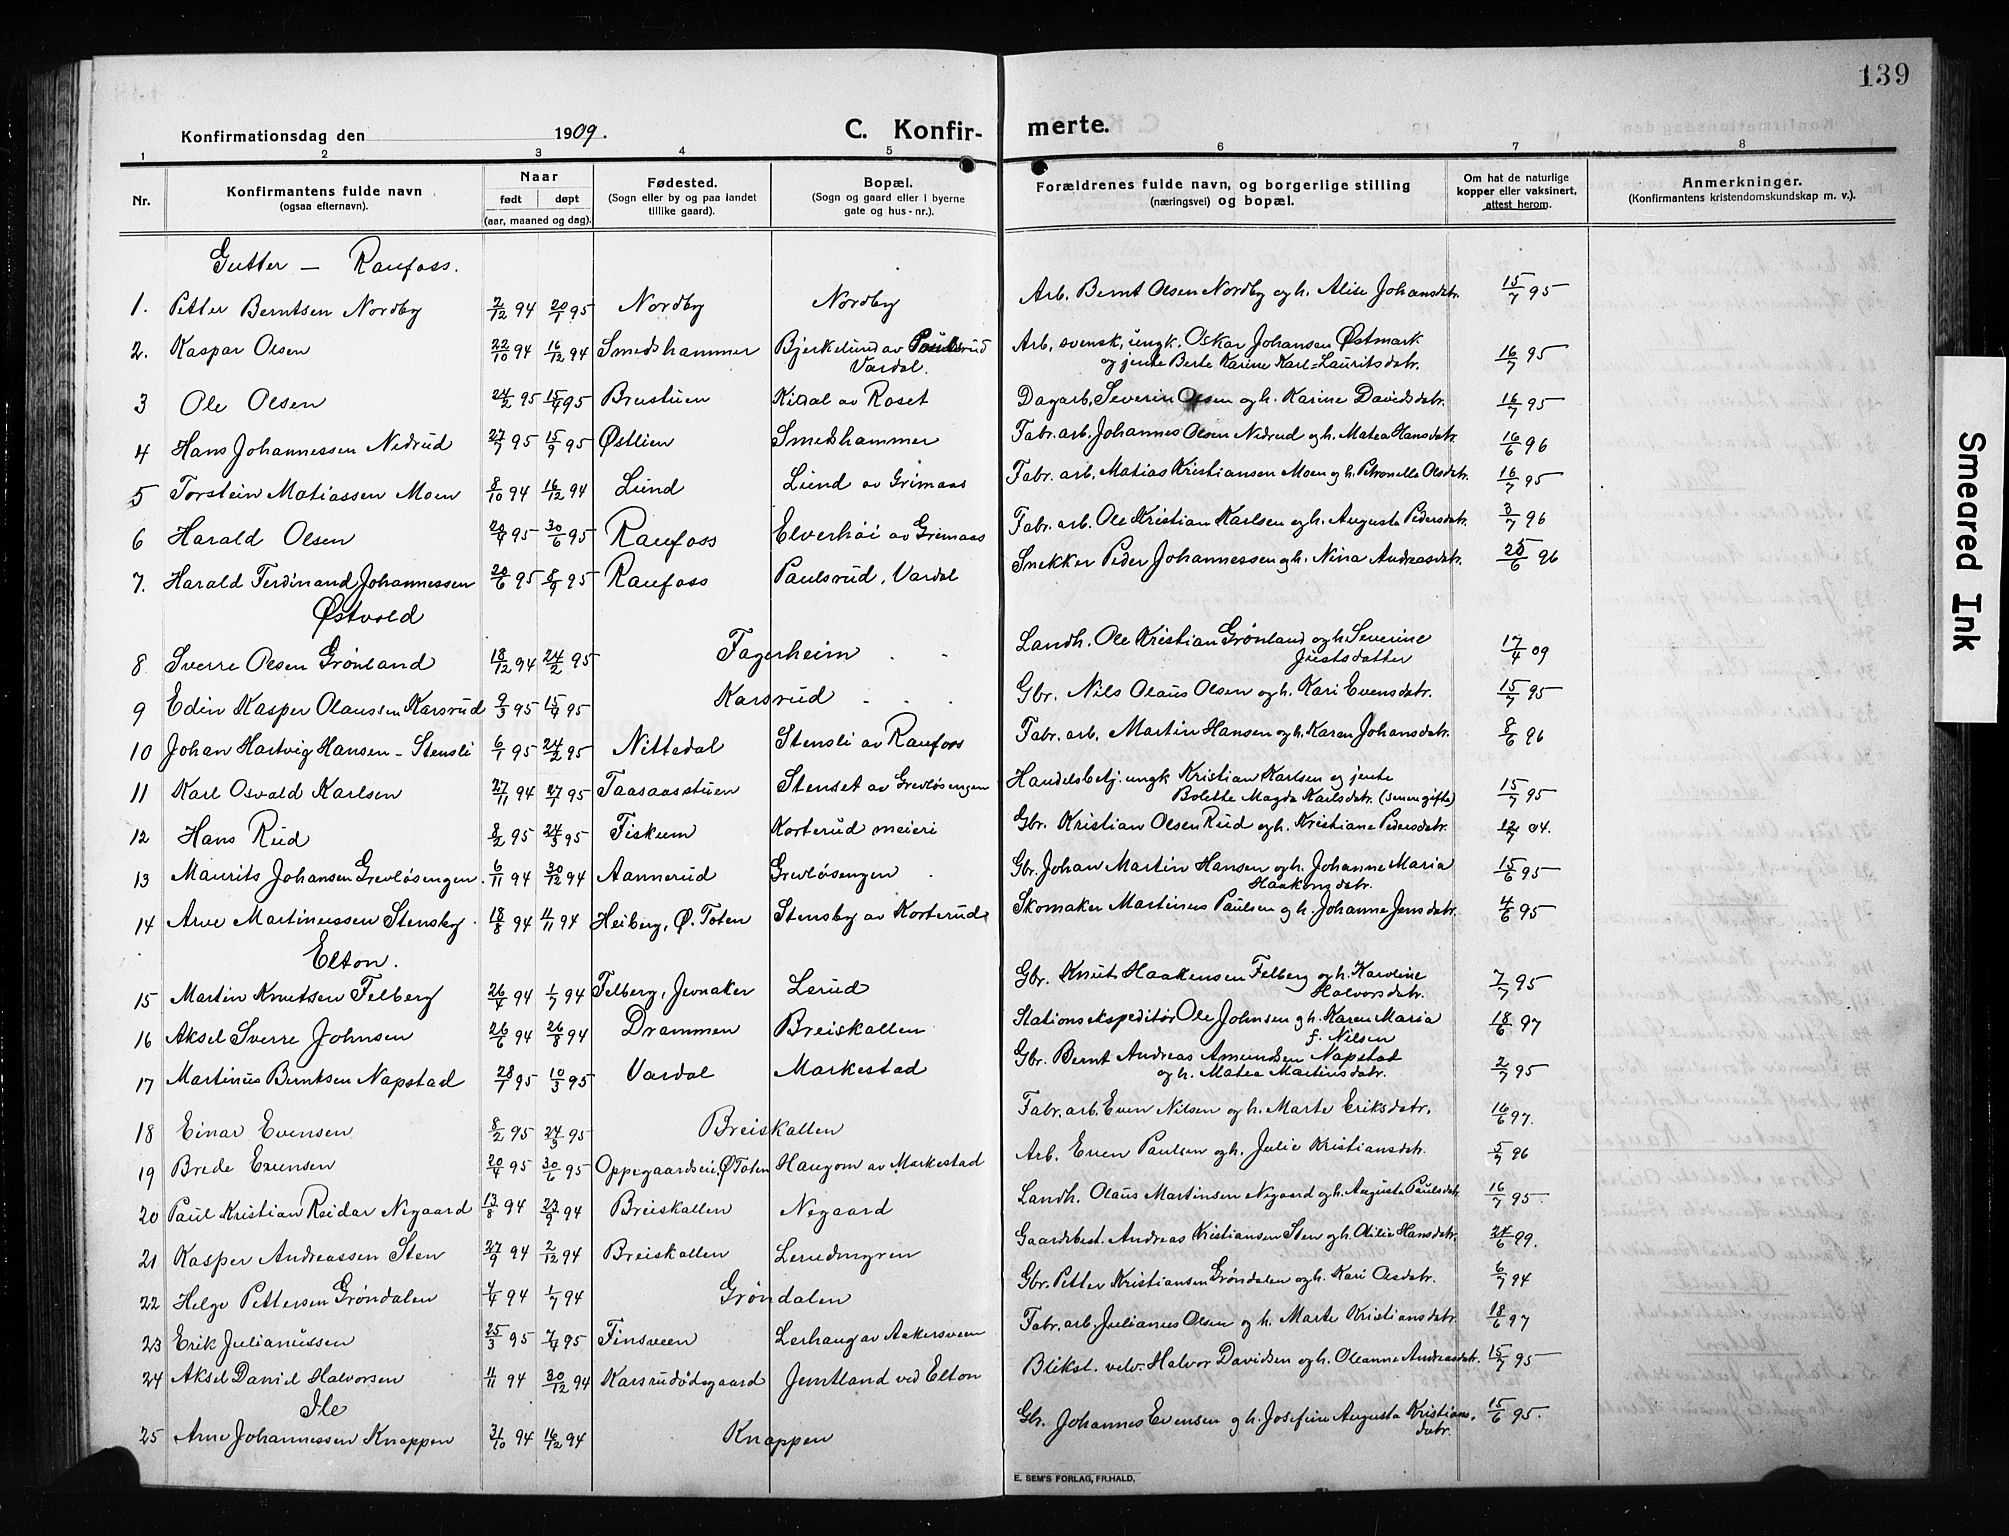 139
Konfirmationsdag den 1909.
C. Konfir- merte.
1 2 3 4 5 6 7 8
Nr.
Konfirmantens fulde navn
(ogsaa efternavn).
Naar
født døpt
(aar, maaned og dag).
Fødested.
(Sogn eller by og paa landet
tillike gaard).
Bopæl.
(Sogn og gaard eller i byerne
gate og hus-nr.).
Forældrenes fulde navn, og borgerlige stilling
(næringsvei) og bopæl.
Om hat de naturlige
kopper eller vaksinert,
attest herom.
Anmerkninger.
(Konfirmantens kristendomskundskap m. v.).
Gutter — Raufoss.
1. Petter Berntsen Nordby 2/12 94 20/1 95 Nordby Nordby Arb. Bernt Olsen Nordby og h. Alise Johansdatr. 15/7 95
2. Kaspar Olsen 22/10 94 16/12 94 Smedshammer Bjerkelund av Paulsrud Arb. svensk, ungk. Oskar Johansen Østmark
Vardal. og jente Berte Karine Karl-Lauritsdatr. 16/7 95
3 Ole Olsen 24/2 95 15/4 95 Breistuen Kival av Roset Dagarb. Severin Olsen og h. Karine Davidsdatr. 16/7 95
4 Hans Johannessen Nedrud 27/7 95 15/9 95 Østlien Smedshammer Fabr. arb. Johannes Olsen Nedrud og h. Matea Hansdatr. 16/6 96
5 Torstein Matiassen Moen 8/10 94 16/12 94 Lund Lund av Grimaas Fabr. arb. Matias Kristiansen Moen og h. Petronelle Olsdatr. 16/7 95
6 Harald Olsen 95 30/6 95 Raufoss Elverhøi av Grimaas Fabr. arb. Ole Kristian Karlsen og h. Augusta Pedersdatr. 3/7 96
7. Harald Ferdinand Johannessen 95 8/9 95 Raufoss Paulsrud, Vardal Snekker Peder Johannessen og h. Nina Andreasdatr. 25/6 96
Østvold
8 Sverre Olsen Grønland 18/12 94 24/2 95 Fagerheim Landh. Ole Kristian Grønland og h. Severine
Justsdatter 17/4 09
9 Edin Kasper Olaussen Karsrud 9/3 95 15/4 95 Karsrud Gbr. Nils Olaus Olsen og h. Kari Evensdatr. 15/7 95
10 Johan Hartvig Hansen - Stensli 6/1 95 24/2 95 Nittedal Stensli av Raufoss Fabr. arb. Martin Hansen og h. Karen Johansdatr. 8/6 96
11 Karl Osvald Karlsen 27/11 94 27/1 95 Taasaasstuen Stenset av Grevløsengen Handelsbetj. ungk Kristian Karlsen og jente
Bolette Magda Karlsdatr. (senere gifte) 15/7 95
12 Hans Rud 8/2 95 24/3 95 Fiskum Korterud meieri Gbr. Kristian Olsen Rud og h. Kristiane Pedersdatr. 12/7 04.
13 Maurits Johansen Grevløsengen. 6/11 94 30/12 94 Aannerud Grevløsengen Gbr. Johan Martin Hansen og h. Johanne Maria
Haakensdatr. 15/6 95
14 Arve Martinussen Stensby 18/8 94 4/11 94 Heiberg, Ø. Toten Stensby av Korterud Skomaker Martinus Paulsen og h. Johanne Jensdatr. 4/6 95
Elton.
15 Martin Knutsen Felberg 26/4 94 1/7 94 Felberg, Jevnaker Lerud Gbr. Knut Haakensen Felberg og h. Karoline
Halvorsdatr. 7/7 95
16 Aksel Sverre Johnsen 26/6 94 26/8 94 Drammen Breiskallen Stationsekspeditør Ole Johnsen og h. Karen Maria
f. Nilsen 18/6 97
17 Martinus Berntsen Napstad 28/1 95 10/3 95 Vardal Markestad Gbr. Bernt Andreas Amundsen Napstad
og h. Matea Martinsdatr. 2/7 95
18 Einar Evensen 8/2 95 24/3 95 Breiskallen Fabr. arb. Even Nilsen og h. Marte Eriksdatr. 16/6 97.
19 Brede Evensen 20/4 95 30/6 95 Oppegaardseie, Ø Toten Haugom av Markestad Arb. Even Paulsen og h. Julie Kristiansdatr. 5/7 96
20 Paul Kristian Reidar Negaard 13/8 94 23/9 94 Breiskallen Negaard Landh. Olaus Martinsen Negaard og h. Augusta Paulsdatr. 16/7 95.
21 Kasper Andreassen Sten 27/9 94 2/12 94 Breiskallen Lerudmyren Gaardsbest. Andreas Kristiansen Sten og h. Oilie Hansdatr. 24/6 99.
22 Helge Pettersen Grøndalen 4/4 94 1/7 94 Grøndalen Gbr. Petter Kristiansen Grøndalen og h. Kari Olsdatr. 6/7 94
23 Erik Julianussen 25/3 95 7/4 95 Finsveen Lerhaug av Aakersveen Fabr. arb. Julianus Olsen og h. Marte Kristiansdatr. 18/6 97
24 Aksel Daniel Halvorsen 4/11 94 30/12 94 Karsrudødegaard Jemtland ved Elton Blikst. velv. Halvor Davidsen og h. Oleanne Andreasdatr. 15/7 95
Ile
25 Arne Johannessen Knappen 31/10 94 16/12 94 Knappen Gbr. Johannes Evensen og h. Josefine Augusta Kristians-
datr. 15/6 95.
E. SEM'S FORLAG, FR.HALD,
Smeared Ink